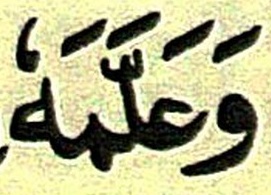 وَعَلَّمَهُ